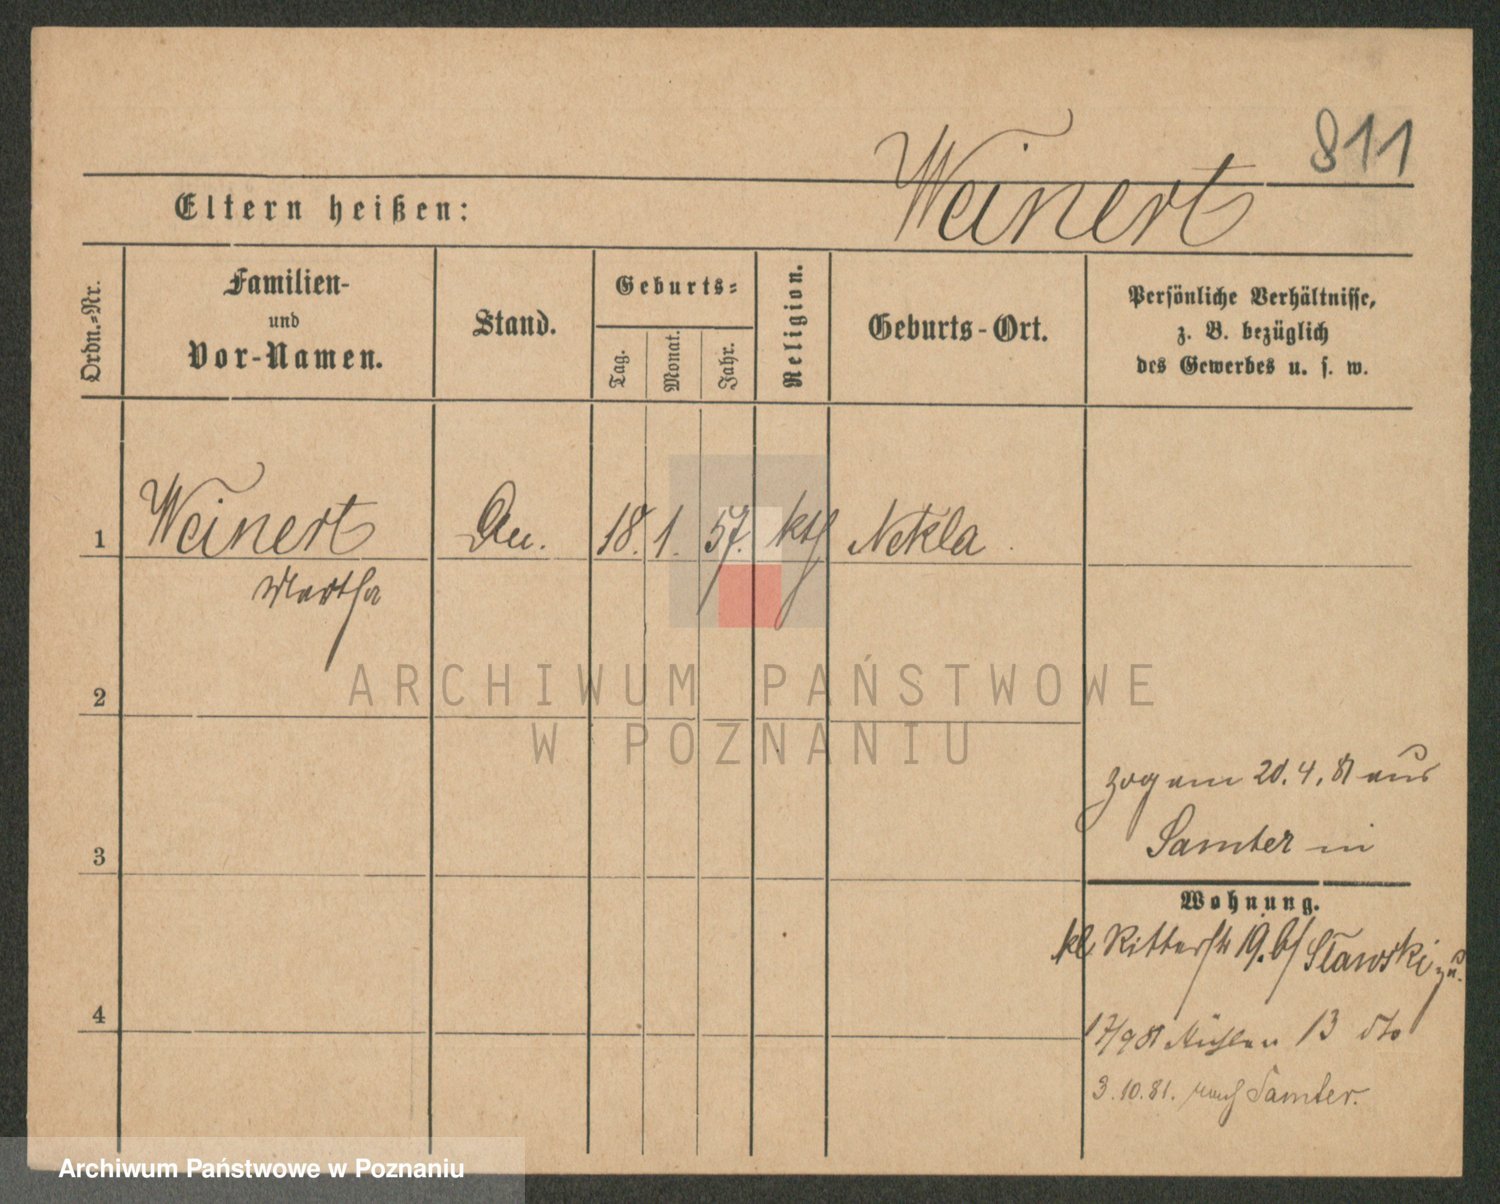 811
Weinert
Eltern heißen:
Ordn.-Nr.
Familien-
und
Vor-Namen.
Stand.
Geburts-
Tag.
Monat.
Jahr.
Religion.
Geburts-Ort.
Persönliche Verhältnisse,
z. B. bezüglich
des Gewerbes u. s. w.
1 Weinert 18. 1. 57. kth Nekla
Martha
2
ARCHIWUM PAŃSTWOWE
W POZNANIU
zog am 20. 4. 81 aus
Samter in
3
Wohnung.
kl. Ritterstr 19. b/ Slawski zu.
4
17/9 81 Mühlen 13 dto
3. 10. 81. nach Samter.
Archiwum Państwowe w Poznaniu